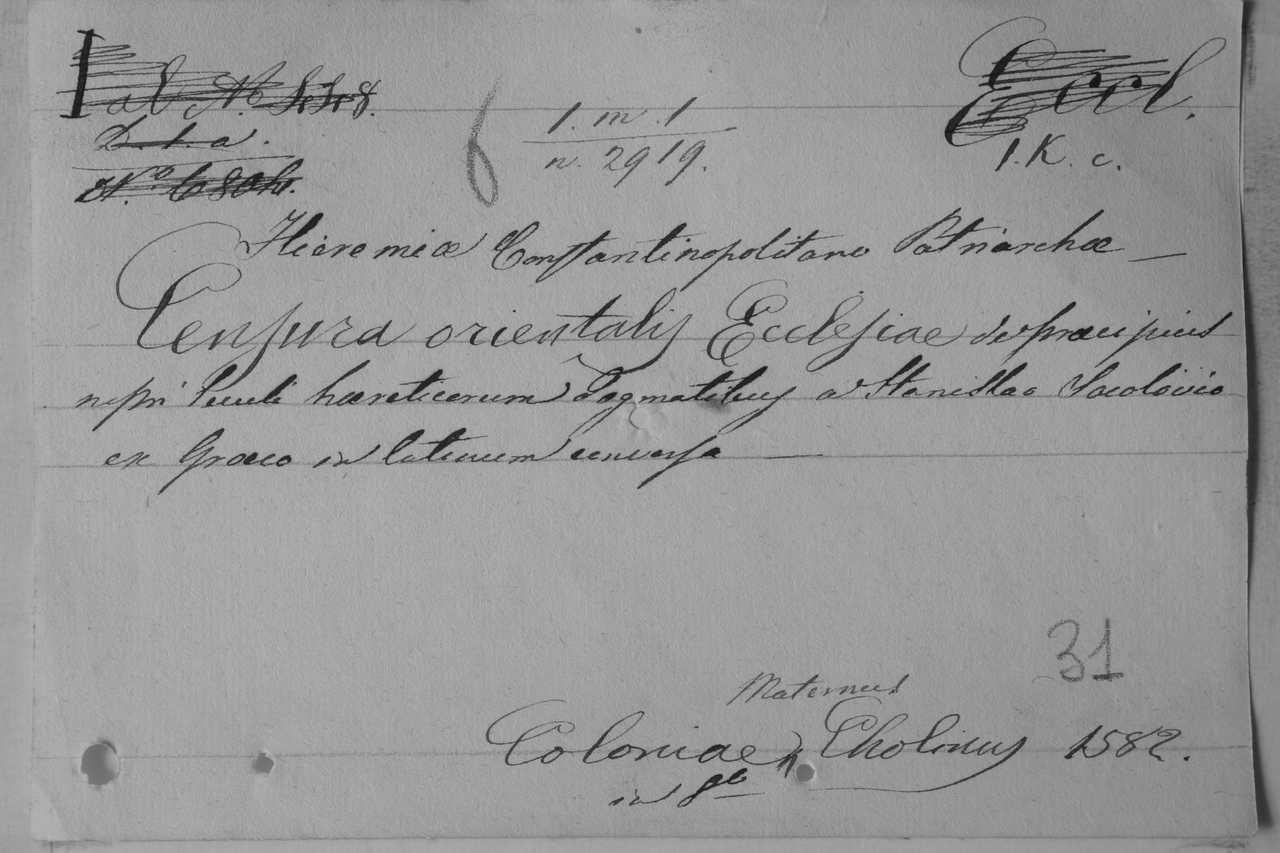 Lab. N. 448. Eccl.
D. 1. a. 6 1. m. 1 1. K. c.
N.º 6804. n. 2919.
Hieremiæ Constantinopolitano Patriarchæ —
Censura orientalis Ecclesiae de præcipuis
nostri seculi hæreticorum Dogmatibus a Stanislao Socolovio
ex Græco in latinum conversa —
31
Maternus
Coloniae, Cholinus 1582.
in 8º